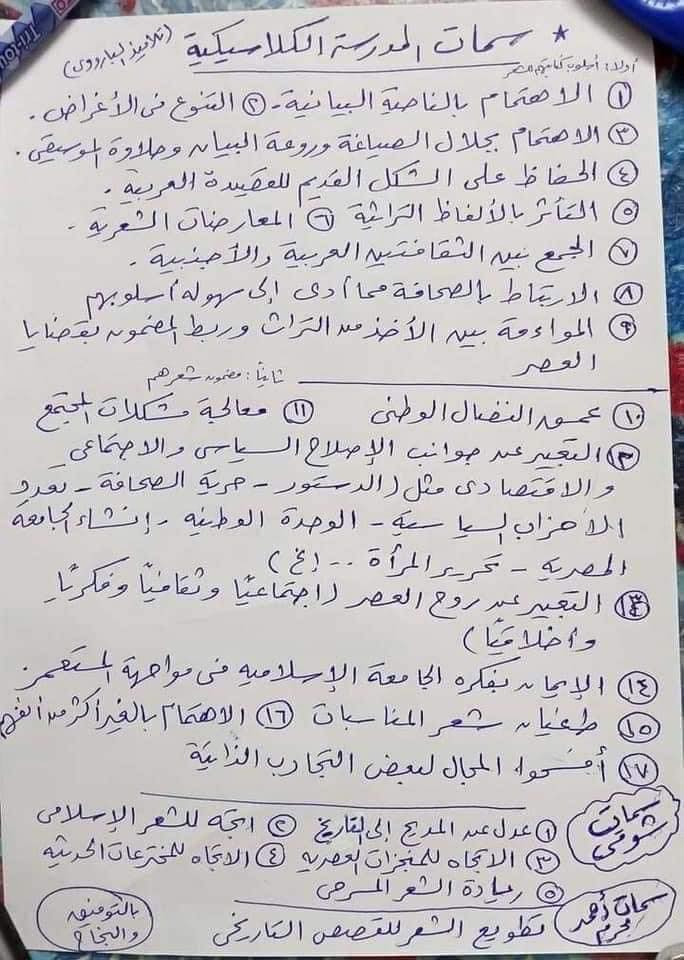 * سمات المدرسة الكلاسيكية (تلاميذ البارودي)
أولا: أسلوب كتابتهم الشعر
① الاهتمام بالناحية البيانية - ② التنوع في الأغراض.
③ الاهتمام بجلال الصياغة وروعة البيان وحلاوة الموسيقى.
④ الحفاظ على الشكل القديم للقصيدة العربية.
⑤ التأثر بالألفاظ التراثية ⑥ المعارضات الشعرية.
⑦ الجمع بين الثقافتين العربية والأجنبية.
⑧ الارتباط بالصحافة مما أدى إلى سهولة أسلوبهم
⑨ المواءمة بين الأخذ من التراث وربط المضمون بقضايا
العصر
ثانيًا: مضمون شعرهم
⑩ عمق النضال الوطني ⑪ معالجة مشكلات المجتمع
⑫ التعبير عن جوانب الإصلاح السياسي والاجتماعي
والاقتصادي مثل (الدستور - حرية الصحافة - تعدد
الأحزاب السياسية - الوحدة الوطنية - إنشاء الجامعة
المصرية - تحرير المرأة .. إلخ)
⑬ التعبير عن روح العصر (اجتماعيًا وثقافيًا وفكريًا
وأخلاقيًا)
⑭ الإيمان بفكرة الجامعة الإسلامية في مواجهة المستعمر
⑮ طغيان شعر المناسبات ⑯ الاهتمام بالغير أكثر من أنفسهم
⑰ أفسحوا المجال لبعض التجارب الذاتية
سمات شوقي
① عدل عن المديح إلى التاريخ ② اتجه للشعر الإسلامي
③ الاتجاه للمنجزات العصرية ④ الاتجاه للمخترعات الحديثة
⑤ ريادة الشعر المسرحي
سمات أحمد محرم
تطويع الشعر للقصص التاريخي
بالتوفيق
والنجاح